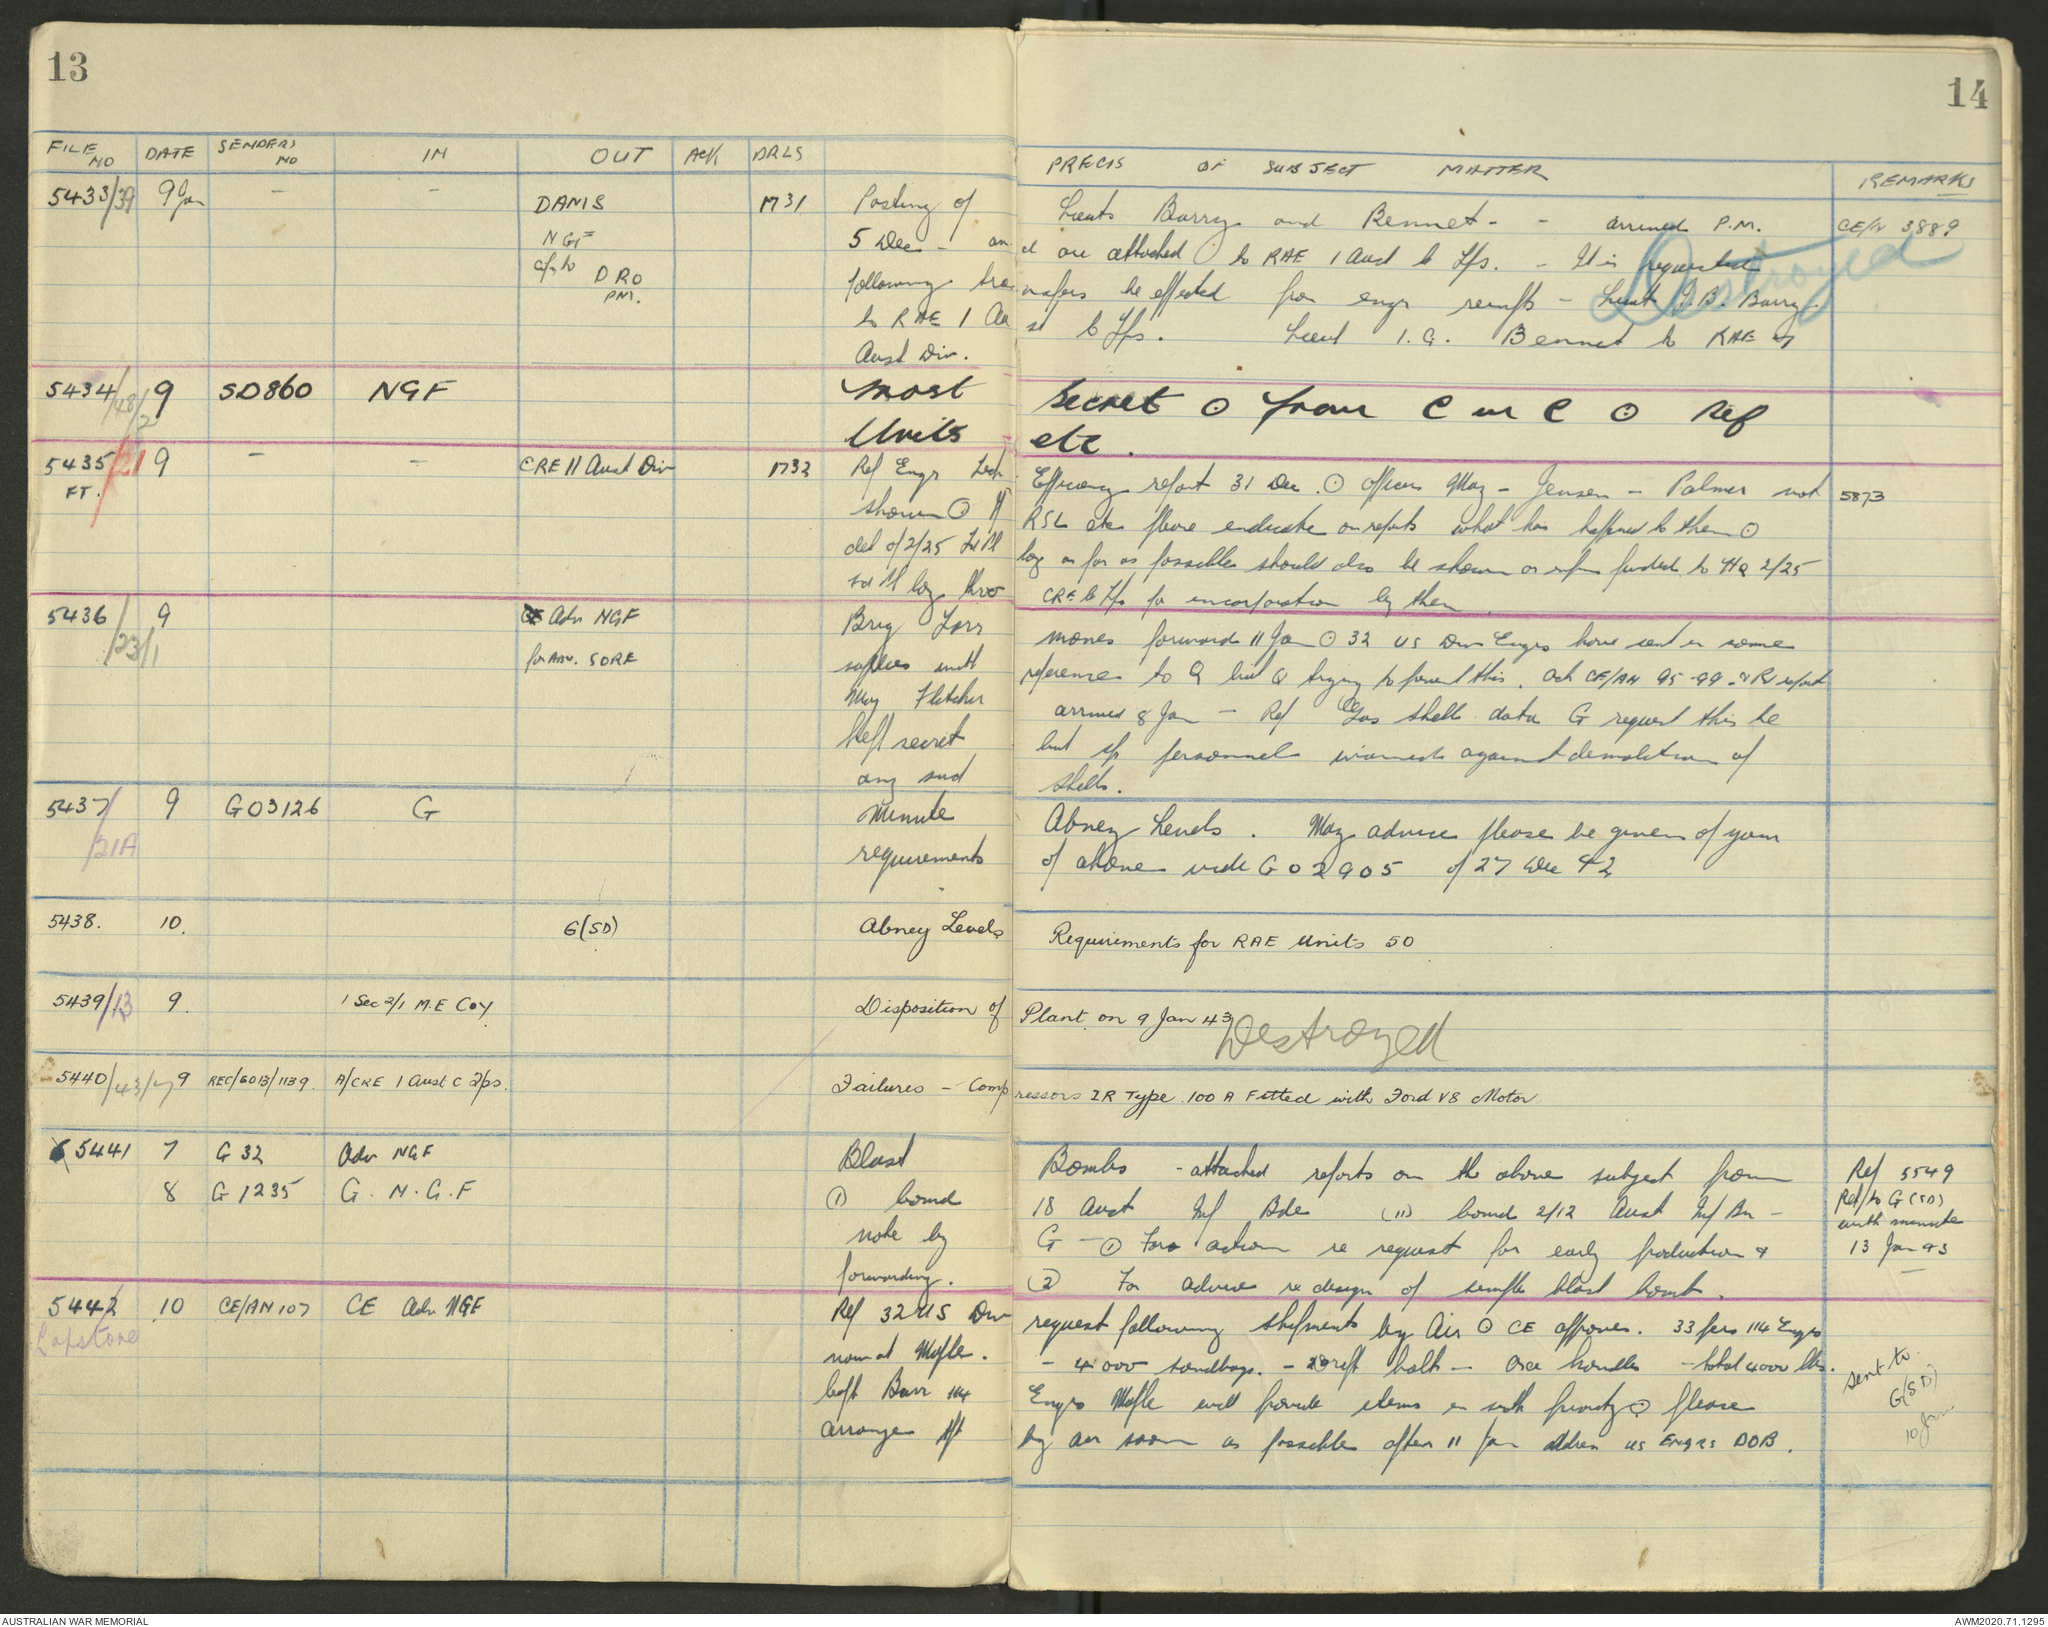 13
14
FILE NO DATE SENDERS NO IN OUT ACK DRLS PRECIS OF SUBJECT MATTER REMARKS
5433/39 9 Jan - - DAMS 1731 Posting of Lieuts Barry and Bennet - - arrived P.M. CE/N 3889
NGF 5 Dec - and are attached to RAE 1 Aust C Tps. - It is requested
c/y to DRO following transfers be effected from engr reinfts - Lieut J.B. Barry
PM. to RAE 1 Aust C Tps. Lieut I.G. Bennet to RAE 7
Aust Div.
Destroyed
5434/48/2 9 SD860 NGF Most Secret ⊙ from C in C ⊙ Ref
Units etc.
5435/21 9 - - CRE 11 Aust Div 1732 Ref Engr Tech Efficiency report 31 Dec. ⊙ officers May - Jensen - Palmer not 5873
FT. shown ⊙ If RSL etc please indicate on reports what has happened to them ⊙
det of 2/25 should also be shown or to HQ 2/25
CRE C Tps for incorporation by them.
5436/23/1 9 Adv NGF Brig moves forward 11 Jan ⊙ 32 US Div Engrs have sent in some
for Adv. SORE supplies with reference to Q but Q trying to prevent this. Ack CE/AN 95-99.
May Fletcher arrived 8 Jan - Ref Gas Shells data G request this be
kept secret but personnel warned against demolition of
any such shells.
5437/21A 9 G03126 G Minute Abney Levels. May advice please be given of your
requirements of above vide G02905 of 27 Dec 42
5438. 10. G(SD) Abney Levels Requirements for RAE Units 50
5439/13 9. 1 Sec 2/1 M.E Coy Disposition of Plant on 9 Jan 43
Destroyed
5440/43/7 9 REC/6013/1139. A/CRE 1 Aust C Tps. Failures - Compressors IR Type 100 A Fitted with Ford V8 Motor
5441 7 G 32 Adv NGF Blast Bombs - attached reports on the above subject from Ref 5549
8 G 1235 G. N.G.F (1) bomb 18 Aust Inf Bde (11) bomb 2/12 Aust Inf Bn - Ref to G(SD)
note by G - (1) For action re request for early production & with minute
forwarding. (2) For advice re design of sample blast bomb. 13 Jan 43
5442 10 CE/AN 107 CE Adv NGF Ref 32 US Div request following shipments by Air ⊙ CE approves. 33 pers 114 Engrs
Lapstone now at Mofle. - 4000 sandbags. - bolts - axe handles - total 4000 lbs.
Capt Barr 114 Engrs Mofle will provide items in priority ⊙ please
arrange by air soon as possible after 11 Jan Address US Engrs DOB.
sent to
G(SD)
10 Jan
AUSTRALIAN WAR MEMORIAL
AWM2020.71.1295